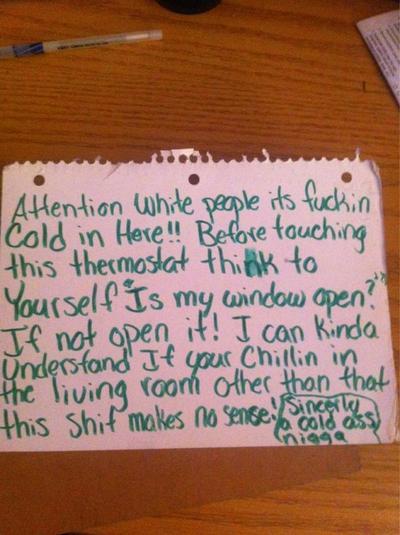 Attention White people its fuckin
Cold in Here!! Before touching
this thermostat think to
Yourself "Is my window open?"
If not open it! I can Kinda
Understand If your Chillin in
the living room other than that
this shit makes no sense!
Sincerly
a cold ass
nigga